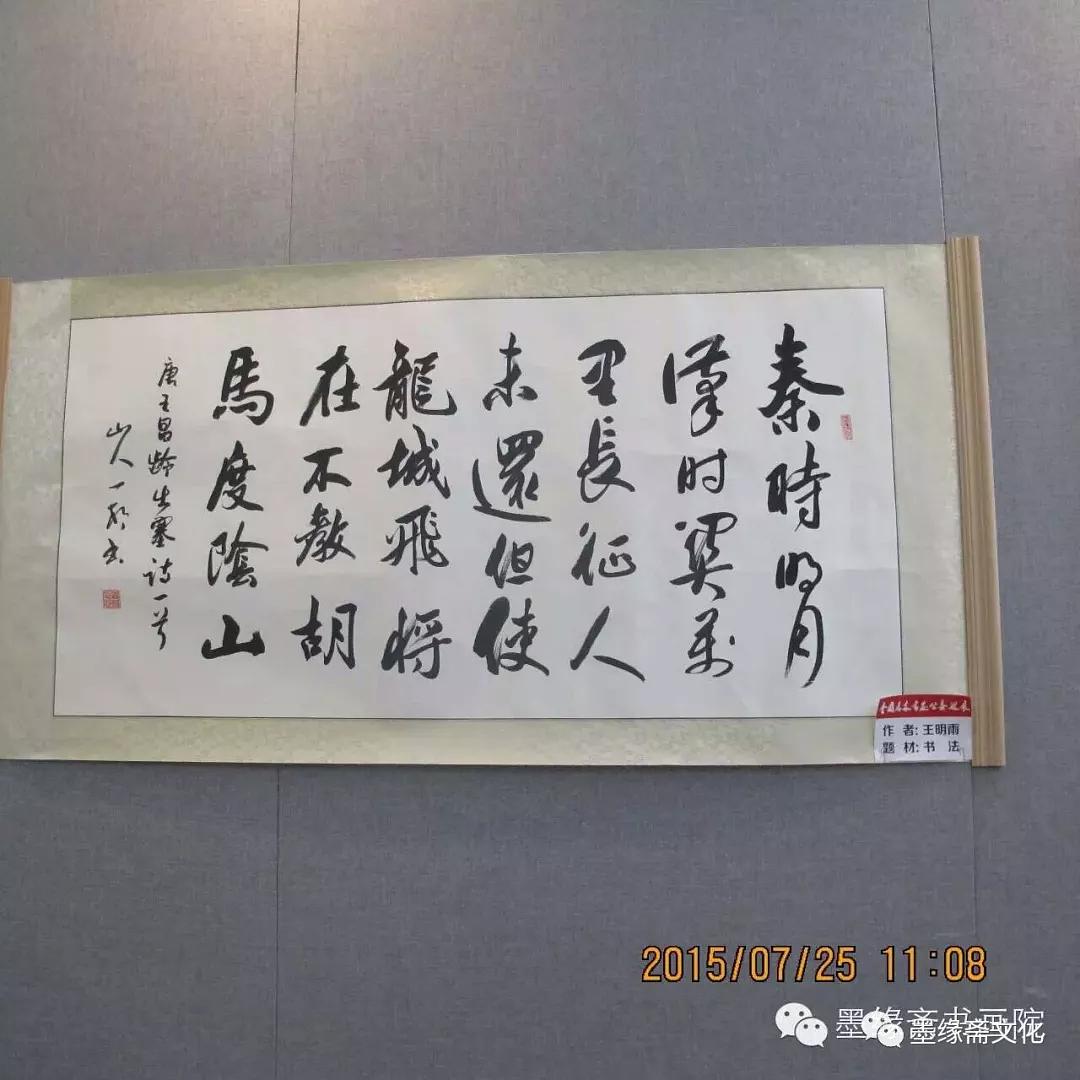 秦時明月
漢时關萬
里長征人
未還但使
龍城飛将
在不教胡
馬度陰山
唐王昌龄出塞诗一首
山人一书
全国名家书画公益巡展
作 者:王明雨
题 材:书 法
2015/07/25 11:08
墨缘斋书画院
墨缘斋文化